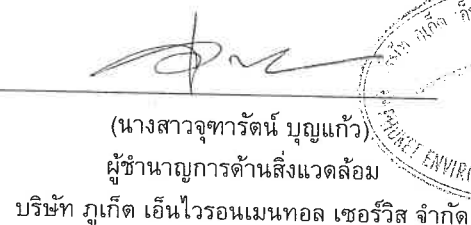 (นางสาวจุฑารัตน์ บุญแก้ว)
ผู้ชำนาญการด้านสิ่งแวดล้อม
บริษัท ภูเก็ต เอ็นไวรอนเมนทอล เซอร์วิส จำกัด